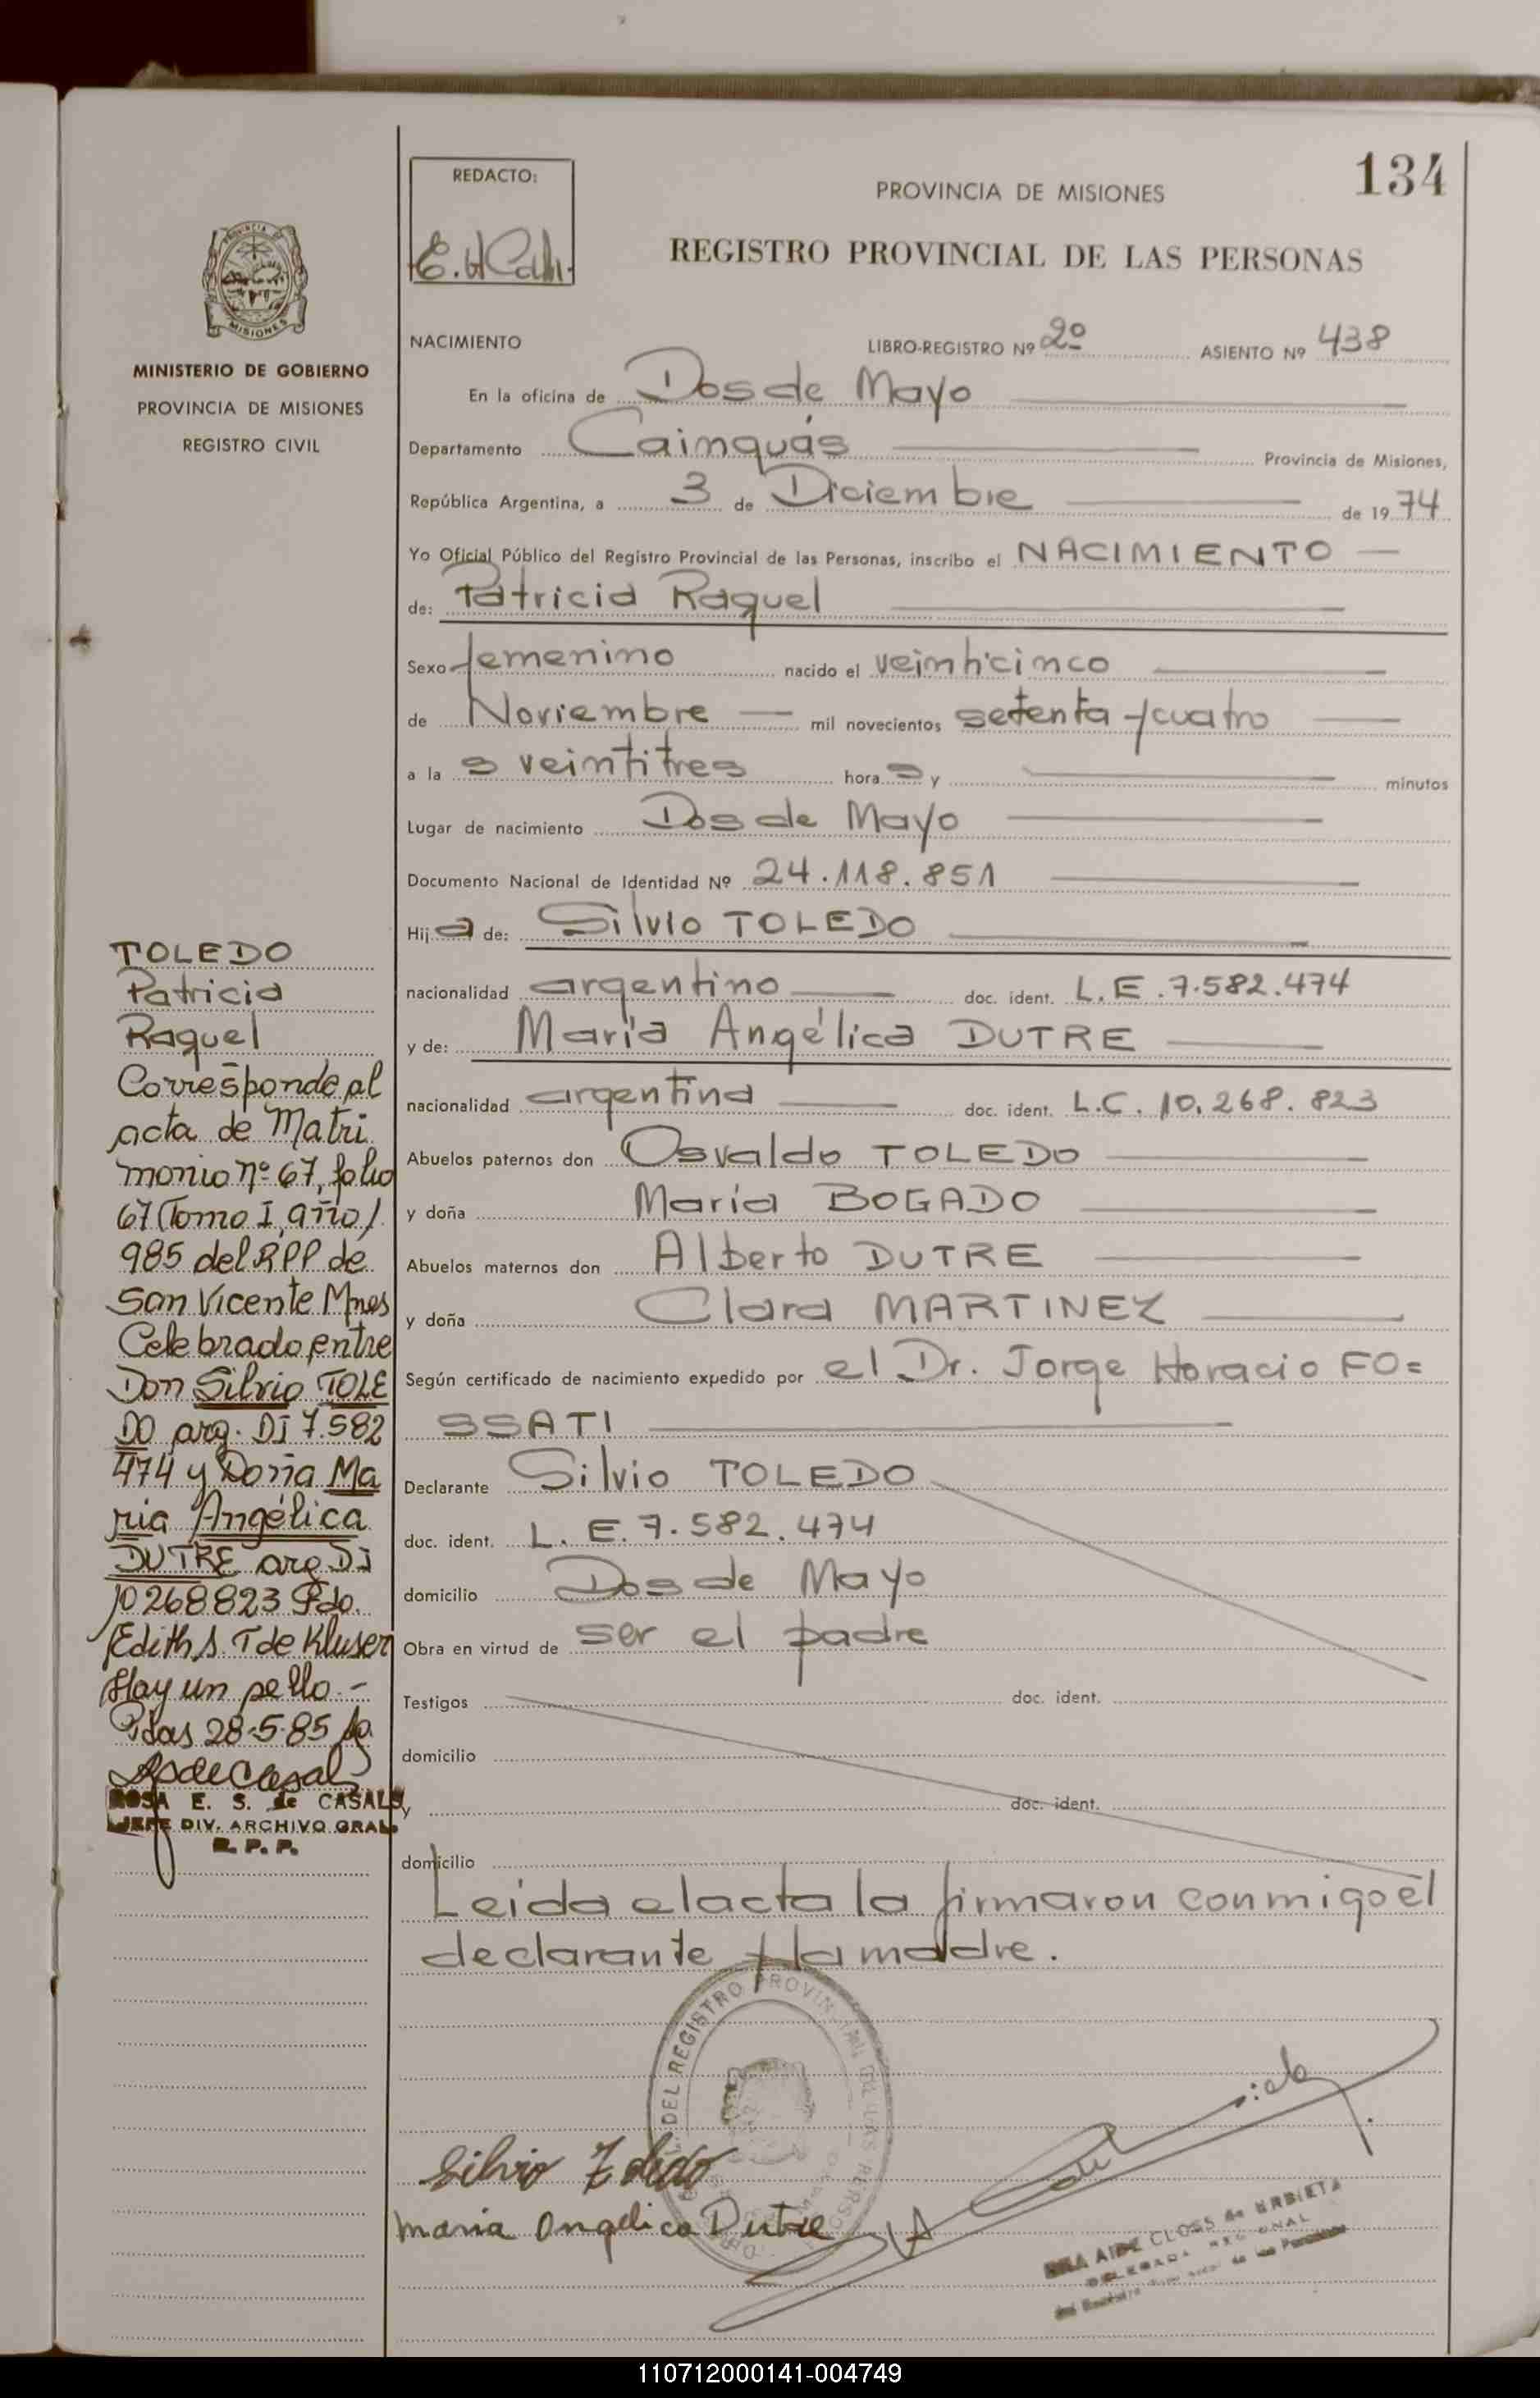 134
REDACTO:
PROVINCIA DE MISIONES
REGISTRO PROVINCIAL DE LAS PERSONAS
MISIONES
MINISTERIO DE GOBIERNO
PROVINCIA DE MISIONES
REGISTRO CIVIL
NACIMIENTO LIBRO-REGISTRO Nº 2º ASIENTO Nº 438
En la oficina de Dos de Mayo
Departamento Cainguás Provincia de Misiones,
República Argentina, a 3 de Diciembre de 1974
Yo Oficial Público del Registro Provincial de las Personas, inscribo el NACIMIENTO
de: Patricia Raquel
Sexo femenino nacido el veinticinco
de Noviembre mil novecientos setenta y cuatro
a la s veintitres hora s y minutos
Lugar de nacimiento Dos de Mayo
Documento Nacional de Identidad Nº 24.118.851
Hij a de: Silvio TOLEDO
nacionalidad argentino doc. ident. L.E.7.582.474
y de: María Angélica DUTRE
nacionalidad argentina doc. ident. L.C. 10.268.823
Abuelos paternos don Osvaldo TOLEDO
y doña María BOGADO
Abuelos maternos don Alberto DUTRE
y doña Clara MARTINEZ
Según certificado de nacimiento expedido por el Dr. Jorge Horacio FO=
SSATI
Declarante Silvio TOLEDO
doc. ident. L. E. 7.582.474
domicilio Dos de Mayo
Obra en virtud de ser el padre
Testigos doc. ident.
domicilio
y doc. ident.
domicilio
Leida el acta la firmaron conmigo el
declarante y la madre.
Silvio Toledo
Maria Angelica Dutre
TOLEDO
Patricia
Raquel
Corresponde al
acta de Matri
monio nº 67, folio
67 (Tomo I, año 1
985 del RPP de
San Vicente Mnes
Celebrado entre
Don Silvio TOLE
DO arg. DI 7.582
474 y Doña Ma
ria Angélica
DUTRE arg DI
10268823 Fdo.
Edith S. T de Kluser
Hay un sello.-
Pdas 28-5-85
ROSA E. S. de CASALS
JEFE DIV. ARCHIVO GRAL.
R. P. P.
DEL REGISTRO PROVINCIAL DE LAS PERSONAS
AIDE CLOSS de URBIETA
DELEGADA REGIONAL
110712000141-004749